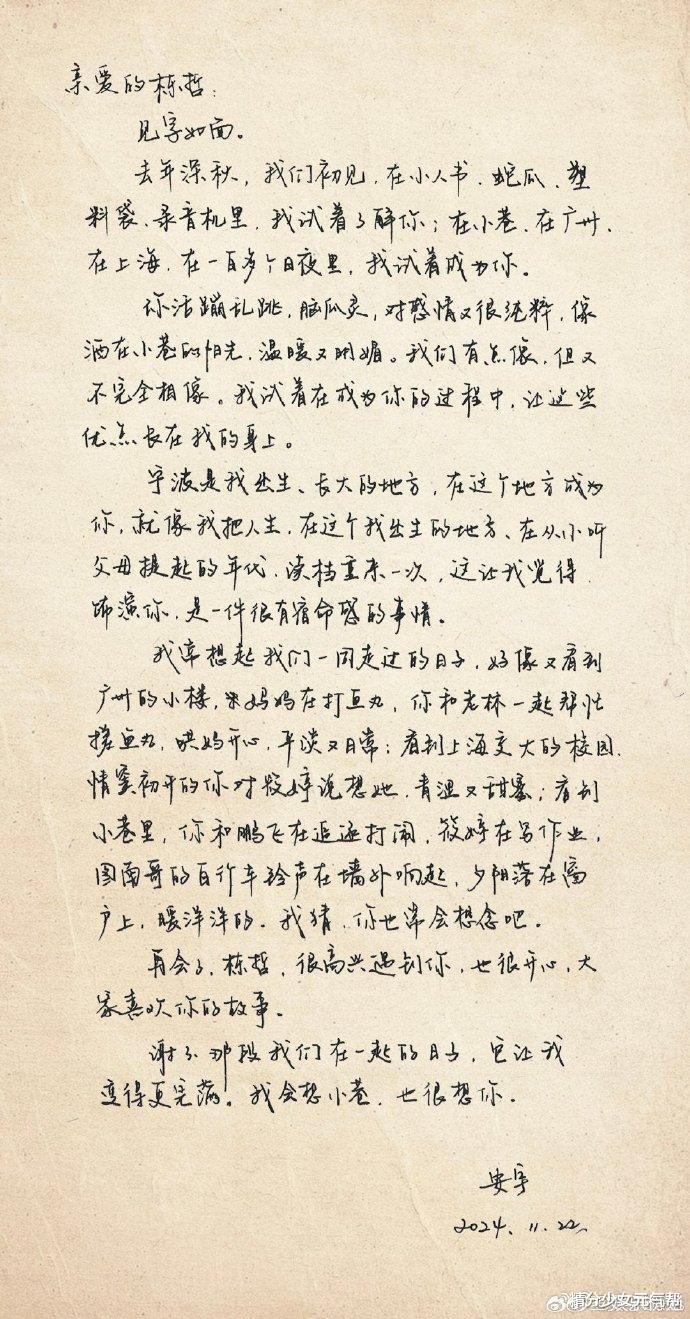 亲爱的栋哲：
见字如面。
去年深秋，我们初见，在小人书、蛇瓜、塑
料袋、录音机里，我试着了解你；在小巷、在广州、
在上海，在一百多个日夜里，我试着成为你。
你活蹦乱跳，脑瓜灵，对感情又很纯粹，像
洒在小巷的阳光，温暖又明媚。我们有点像，但又
不完全相像。我试着在成为你的过程中，让这些
优点长在我的身上。
宁波是我出生、长大的地方，在这个地方成为
你，就像我把人生，在这个我出生的地方、在从小听
父母提起的年代，读档重来一次，这让我觉得，
饰演你，是一件很有宿命感的事情。
我常想起我们一同走过的日子，好像又看到
广州的小楼，宋妈妈在打鱼丸，你和老林一起帮忙
搓鱼丸，哄妈开心，平淡又日常；看到上海交大的校园，
情窦初开的你对筱婷说想她，青涩又甜蜜；看到
小巷里，你和鹏飞在追逐打闹，筱婷在写作业，
图南哥的自行车铃声在墙外响起，夕阳落在窗
户上，暖洋洋的。我猜，你也常会想念吧。
再会了，栋哲，很高兴遇到你，也很开心，大
家喜欢你的故事。
谢谢那段我们在一起的日子，它让我
变得更完满。我会想小巷，也很想你。
安宇
2024.11.22
@精分少女元气帮